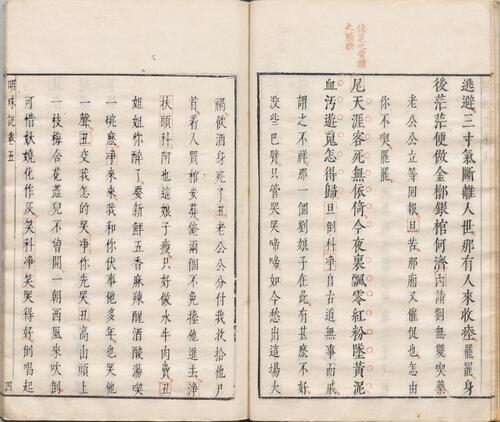 逃避三寸氣斷離人世那有人來收瘞罷罷身
後茫茫便做金槨銀棺何濟內請劉無雙喫藥
老公公立等回報旦苦那廟又催促也怎由
你不喫罷罷
尾天涯客死無依倚今夜裏飄零紅粉墜黃泥
血汚遊䰟怎得歸旦倒科淨自古道無事而戚
謂之不祥那一個劉娘子在此有甚麽不好
沒些巴臂只管哭哭啼啼如今愁出這場大
禍飲酒身死了丑老公公分付我收拾他尸
首着人買棺安葬俺兩個不免擡他進去淨
扶頭科阿也這娘子瘦只好做水牛肉賣丑
姐姐你醉了要新鮮五香麻辣醒酒酸湯喫
一碗麽淨來來我和你伏事他多年也哭他
一聲丑交我怎的哭淨你先哭丑高山頭上
一枝梅合花蓋兒不曾開一朝西風來吹倒
可惜妖嬈化作灰哭科淨笑哭得好倒唱起
明珠記卷五
四